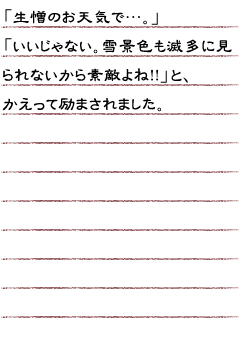 「生憎のお天気で…。」
「いいじゃない。雪景色も滅多に見
られないから素敵よね!!」と、
かえって励まされました。